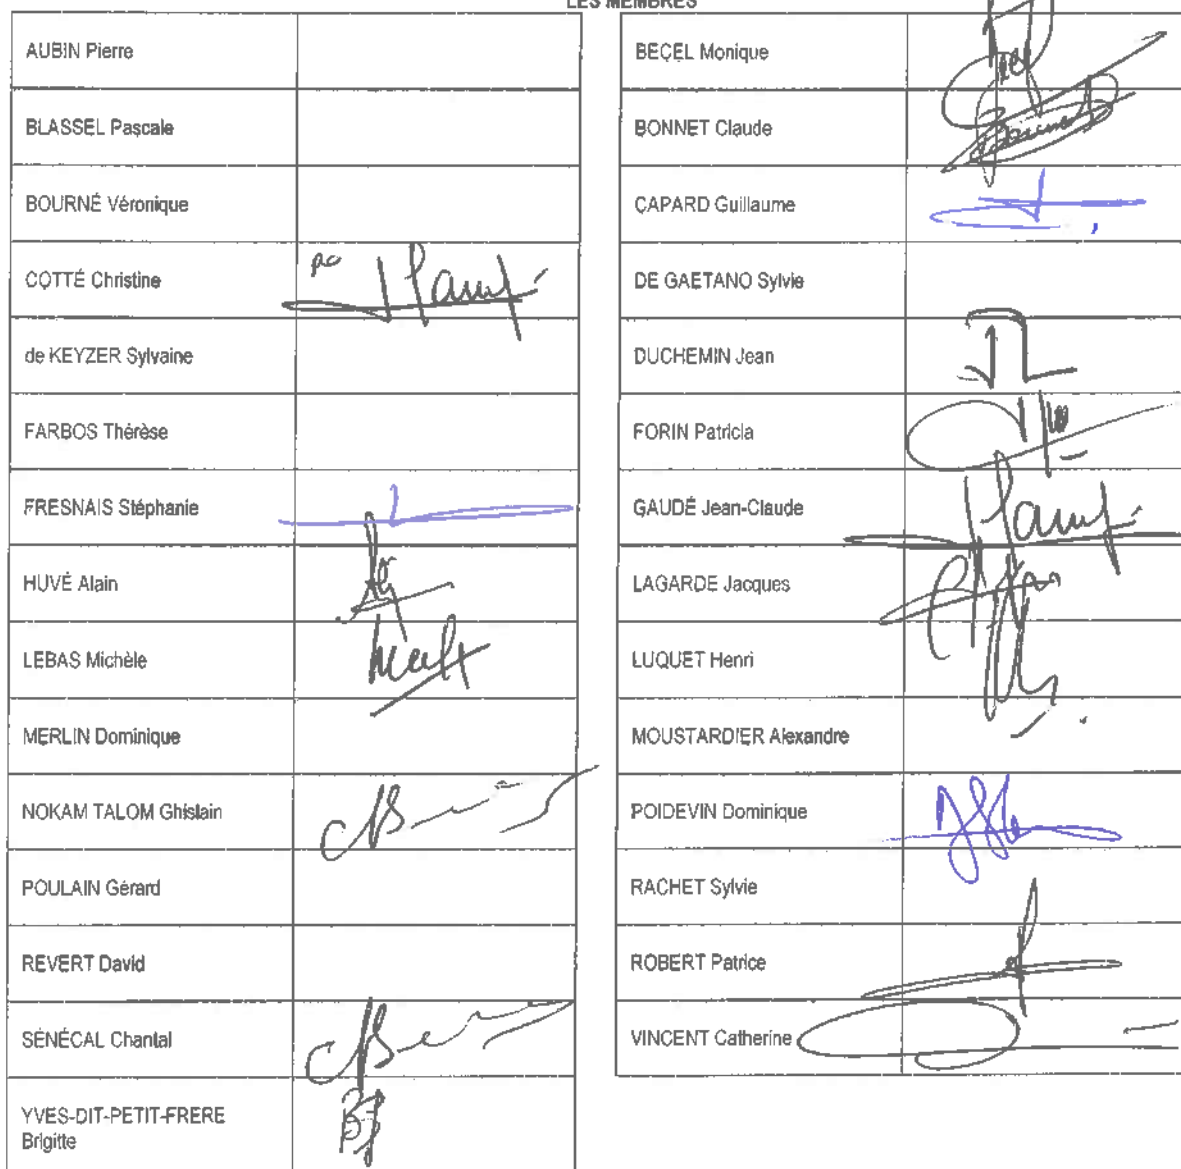 LES MEMBRES
AUBIN Pierre
BLASSEL Pascale
BOURNÉ Véronique
COTTÉ Christine
de KEYZER Sylvaine
FARBOS Thérèse
FRESNAIS Stéphanie
HUVÉ Alain
LEBAS Michèle
MERLIN Dominique
NOKAM TALOM Ghislain
POULAIN Gérard
REVERT David
SÉNÉCAL Chantal
YVES-DIT-PETIT-FRERE
Brigitte
BEÇEL Monique
BONNET Claude
CAPARD Guillaume
DE GAETANO Sylvie
DUCHEMIN Jean
FORIN Patricia
GAUDÉ Jean-Claude
LAGARDE Jacques
LUQUET Henri
MOUSTARDIER Alexandre
POIDEVIN Dominique
RACHET Sylvie
ROBERT Patrice
VINCENT Catherine